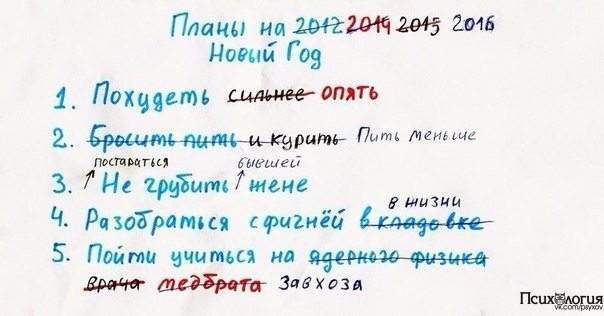 Планы на 2012 2014 2015 2016
Новый Год
1. Похудеть сильнее опять
2. Бросить пить и курить Пить меньше
постараться бывшей
3. Не грубить жене
в жизни
4. Разобраться с фигнёй в кладовке
5. Пойти учиться на ядерного физика
врача медбрата завхоза
Психология
vk.com/psyxov